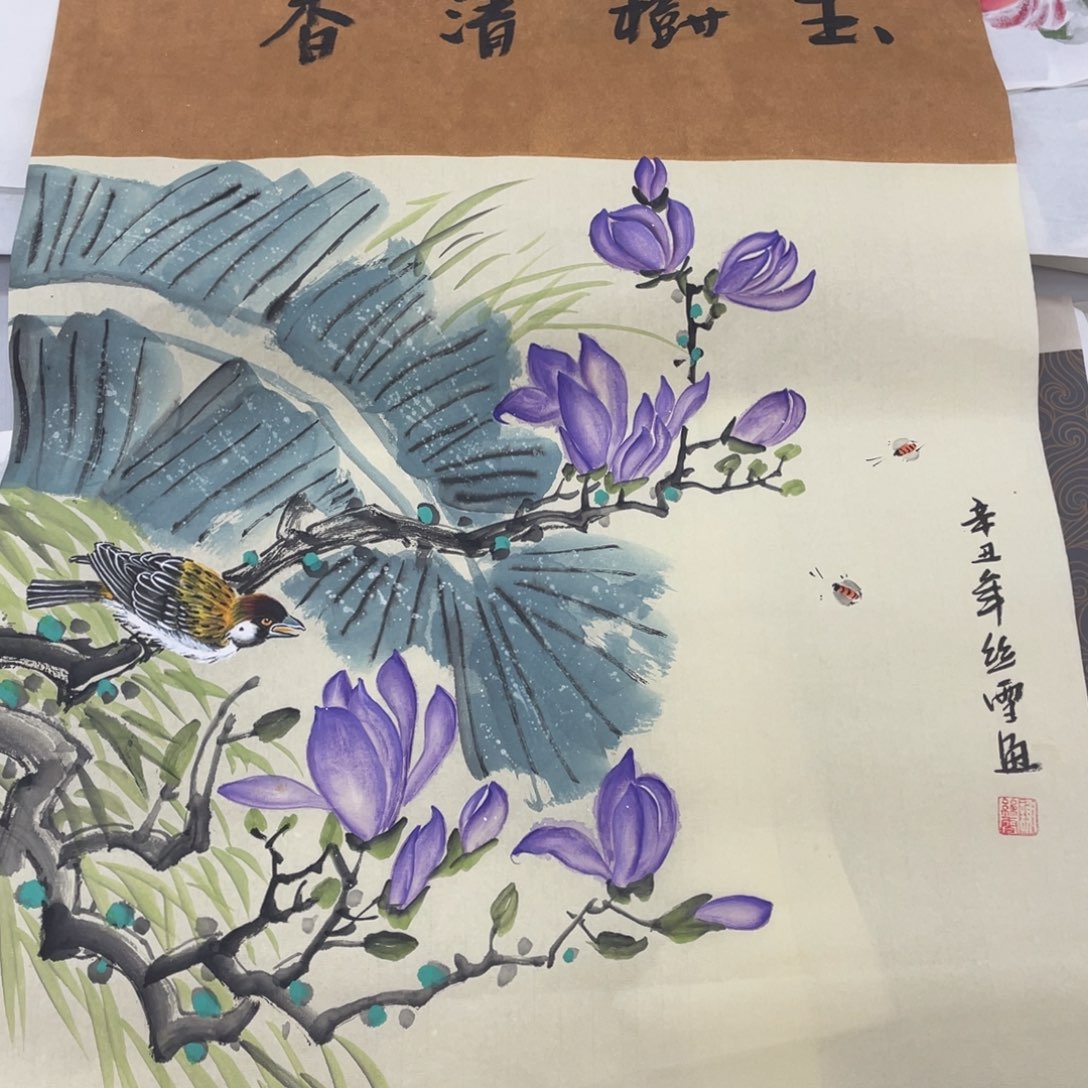 玉樹清香
辛丑年丝雪画